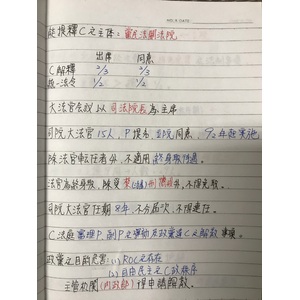 能獨釋C之主体：憲民法關法院
出席 同意
C解釋 2/3 2/3
統一法令 1/2 1/2
大法官会议以司法院長為主席
司院大法官15人，P提名，立院同意，92年起實施
除法官転任者外，不適用終身职待遇。
法官為終身职，除受 刑 外，不得免职。
司院大法官任期8年 不分屆次，不得連任。
C法庭審理P、副P之彈劾及政黨違C之解散 事項。
政黨之目的危害：(1)ROC之存在
(2)自由民主之C政秩序
主管机関(內政部)得申請解散。